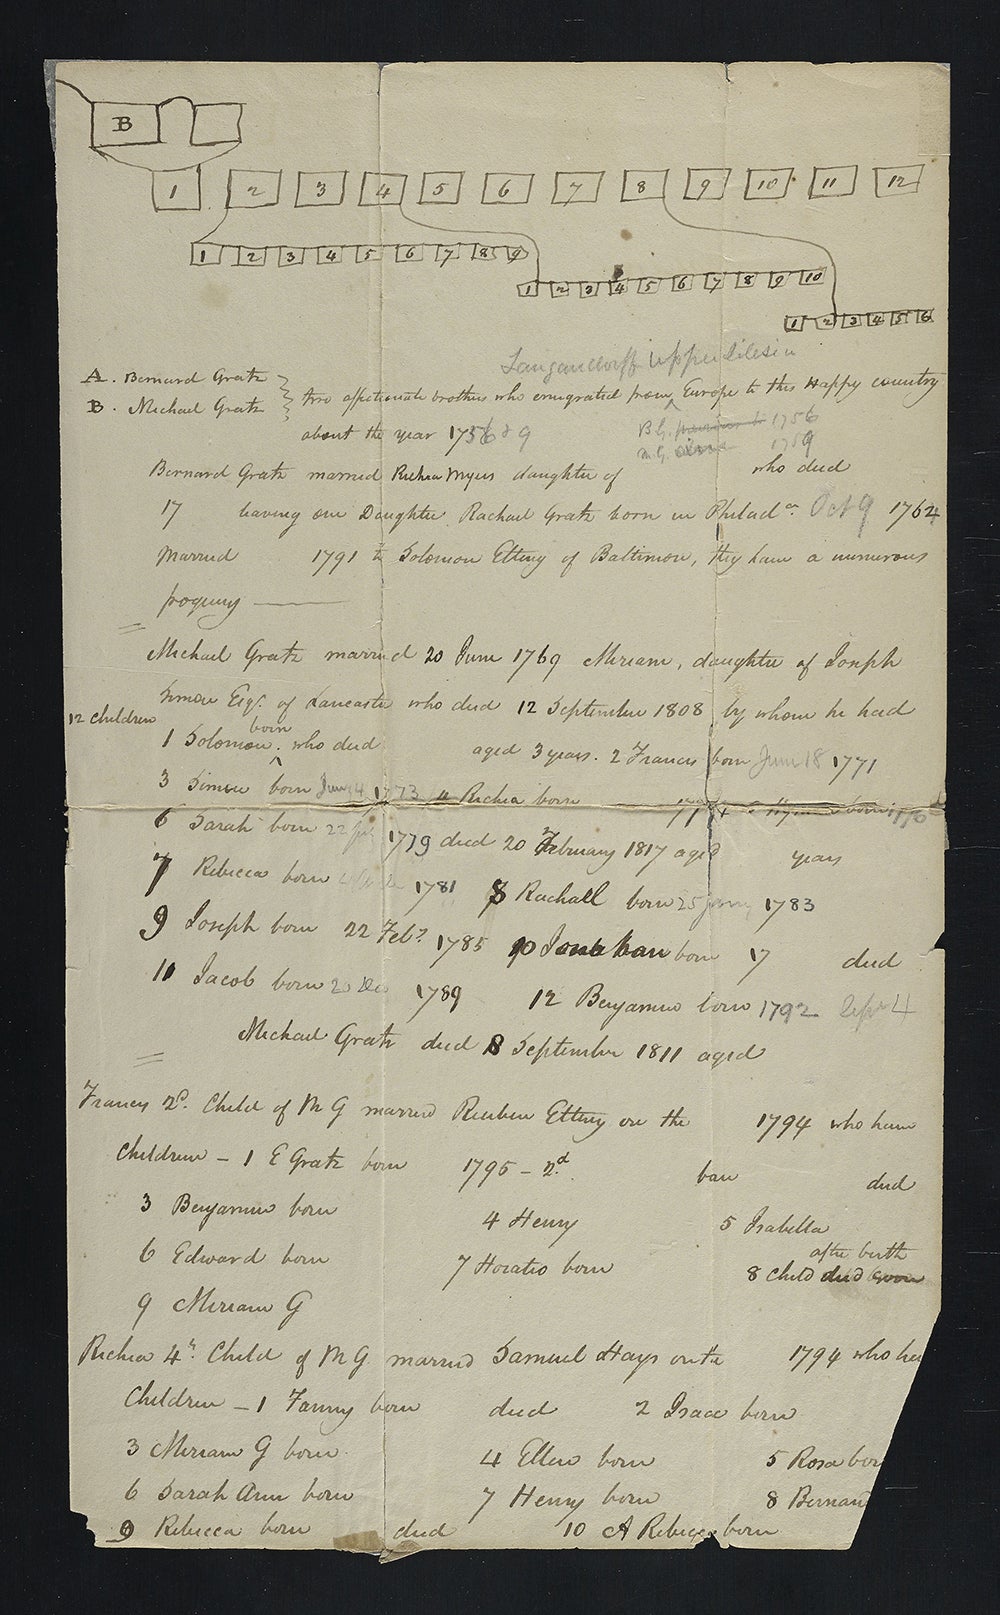 B
1 2 3 4 5 6 7 8 9 10 11 12
1 2 3 4 5 6 7 8 9
1 2 3 4 5 6 7 8 9 10
1 2 3 4 5 6
Langandorff Upper Silesia
A. Bernard Gratz
B. Michael Gratz
two affectionate brothers who emigrated from Europe to this Happy country
about the year 1756 & 9
B.G. 1756
M.G. 1759
Bernard Gratz married Richea Myers daughter of who died
17 leaving one Daughter Rachael Gratz born in Philada. Oct 9 1764
Married 1791 to Solomon Etting of Baltimore, they have a numerous
progeny
Michael Gratz married 20 June 1769 Miriam, daughter of Joseph
Simon Esqr. of Lancaster who died 12 September 1808 by whom he had
12 Children
1 Solomon born who died aged 3 years. 2 Frances born June 18 1771
3 Simon born 1773 4 Richea born 1774 5 Hyman born 1776
6 Sarah born 22 1779 died 20 February 1817 aged years
7 Rebecca born 1781 8 Rachall born 25 1783
9 Joseph born 22 Feby. 1785 10 Jonathan born 17 died
11 Jacob born 20 Dec 1789 12 Benjamin born 1792 Sept 4
Michael Gratz died 8 September 1811 aged
Frances 2d. Child of M G married Reuben Etting on the 1794 who have
Children - 1 E Gratz born 1795 - 2d. born died
3 Benjamin born 4 Henry 5 Isabella
6 Edward born 7 Horatio born 8 Child died after birth
9 Miriam G
Richea 4h. Child of M G married Samuel Hays on the 1794 who ha
Children - 1 Fanny born died 2 Isaac born
3 Miriam G born 4 Ellen born 5 Rosa bor
6 Sarah Ann born 7 Henry born 8 Bernard
9 Rebecca born died 10 A Rebecca born